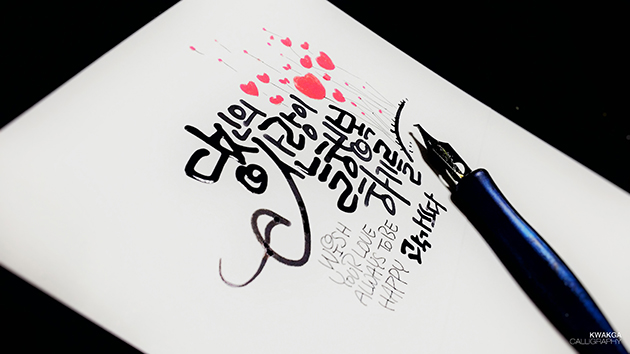 사랑이
늘 행복
하기를
TO WISH
YOUR LOVE
ALWAYS TO BE
HAPPY
KWAKGA
CALLIGRAPHY